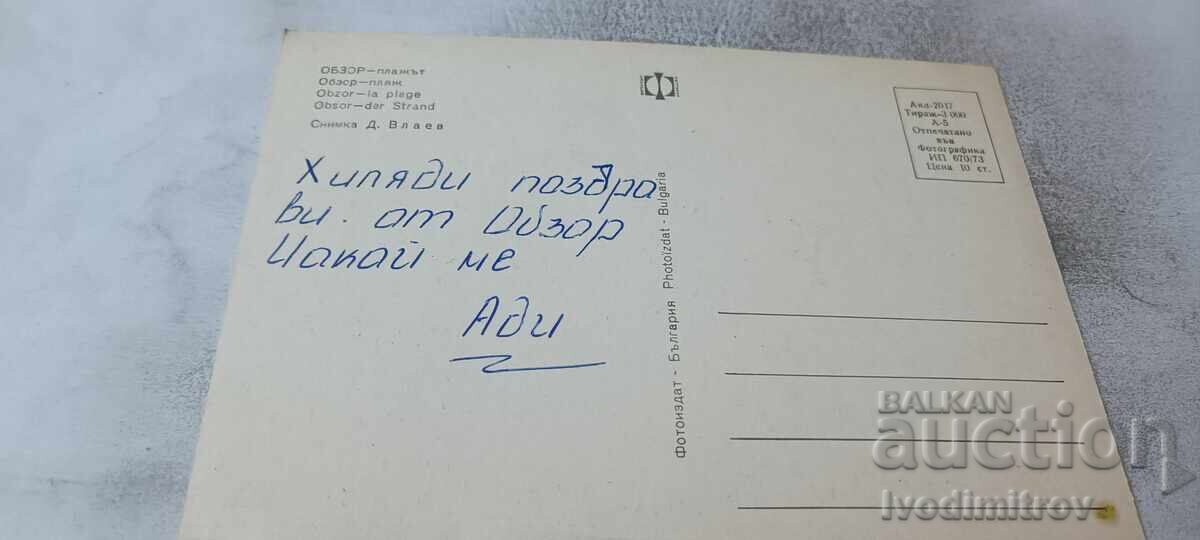 ОБЗОР—плажът
Обзор—пляж
Obzor—la plage
Obsor—der Strand
Снимка Д. Влаев
Хиляди поздра
ви. от Обзор
Чакай ме
Ади
Фотоиздат - България Photoizdat - Bulgaria
Акл-2017
Тираж-3 000
А-5
Отпечатано
във
Фотографика
ИП 670/73
Цена 10 ст.
BALKAN
auction
Ivodimitrov